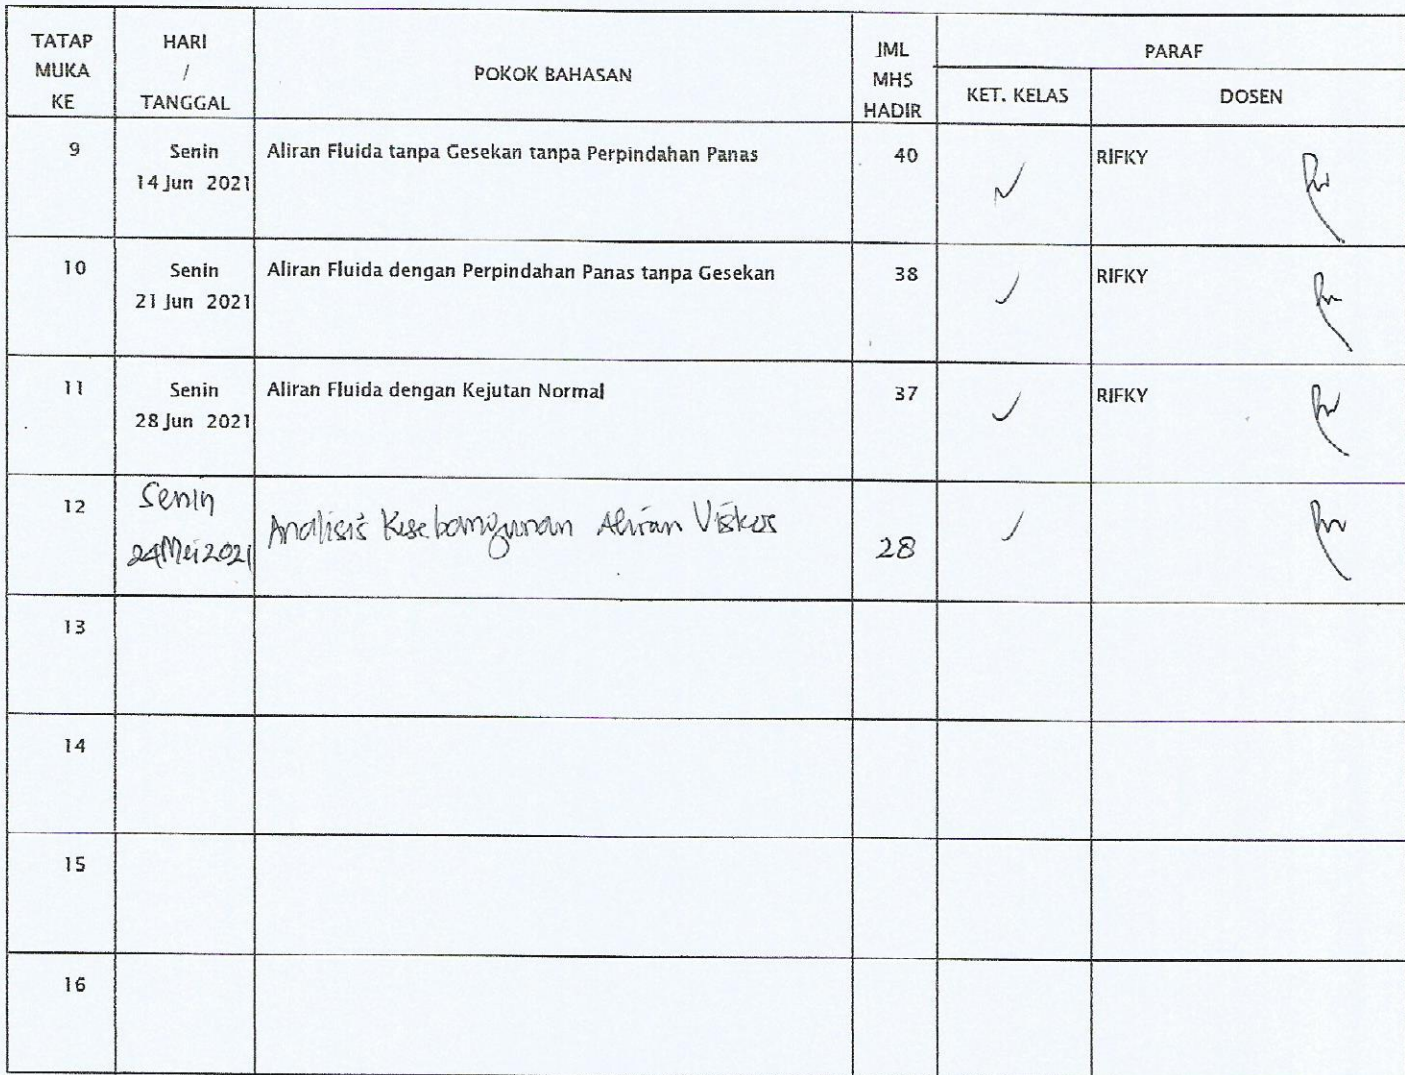 TATAP MUKA KE
HARI / TANGGAL
POKOK BAHASAN
JML MHS HADIR
PARAF
KET. KELAS
DOSEN
9 Senin 14 Jun 2021 Aliran Fluida tanpa Gesekan tanpa Perpindahan Panas 40 RIFKY
10 Senin 21 Jun 2021 Aliran Fluida dengan Perpindahan Panas tanpa Gesekan 38 RIFKY
11 Senin 28 Jun 2021 Aliran Fluida dengan Kejutan Normal 37 RIFKY
12 Senin 24 Mei 2021 Analisis Kesebangunan Aliran Viskos 28
13
14
15
16